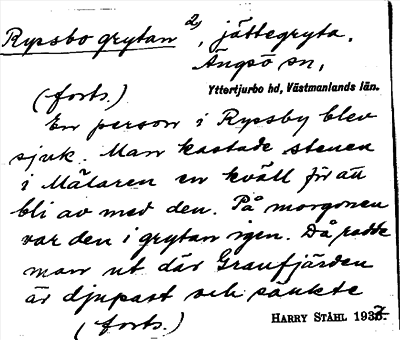 Rypsbo grytan 2, jättegryta.
Ängsö sn,
Yttertjurbo hd, Västmanlands län.
(forts.)
En person i Rypsby blev
sjuk. Man kastade stenen
i Mälaren en kväll för att
bli av med den. På morgonen
var den i grytan igen. Då rodde
man ut där Granfjärden
är djupast och sänkte
(forts.)
HARRY STÅHL 1937.